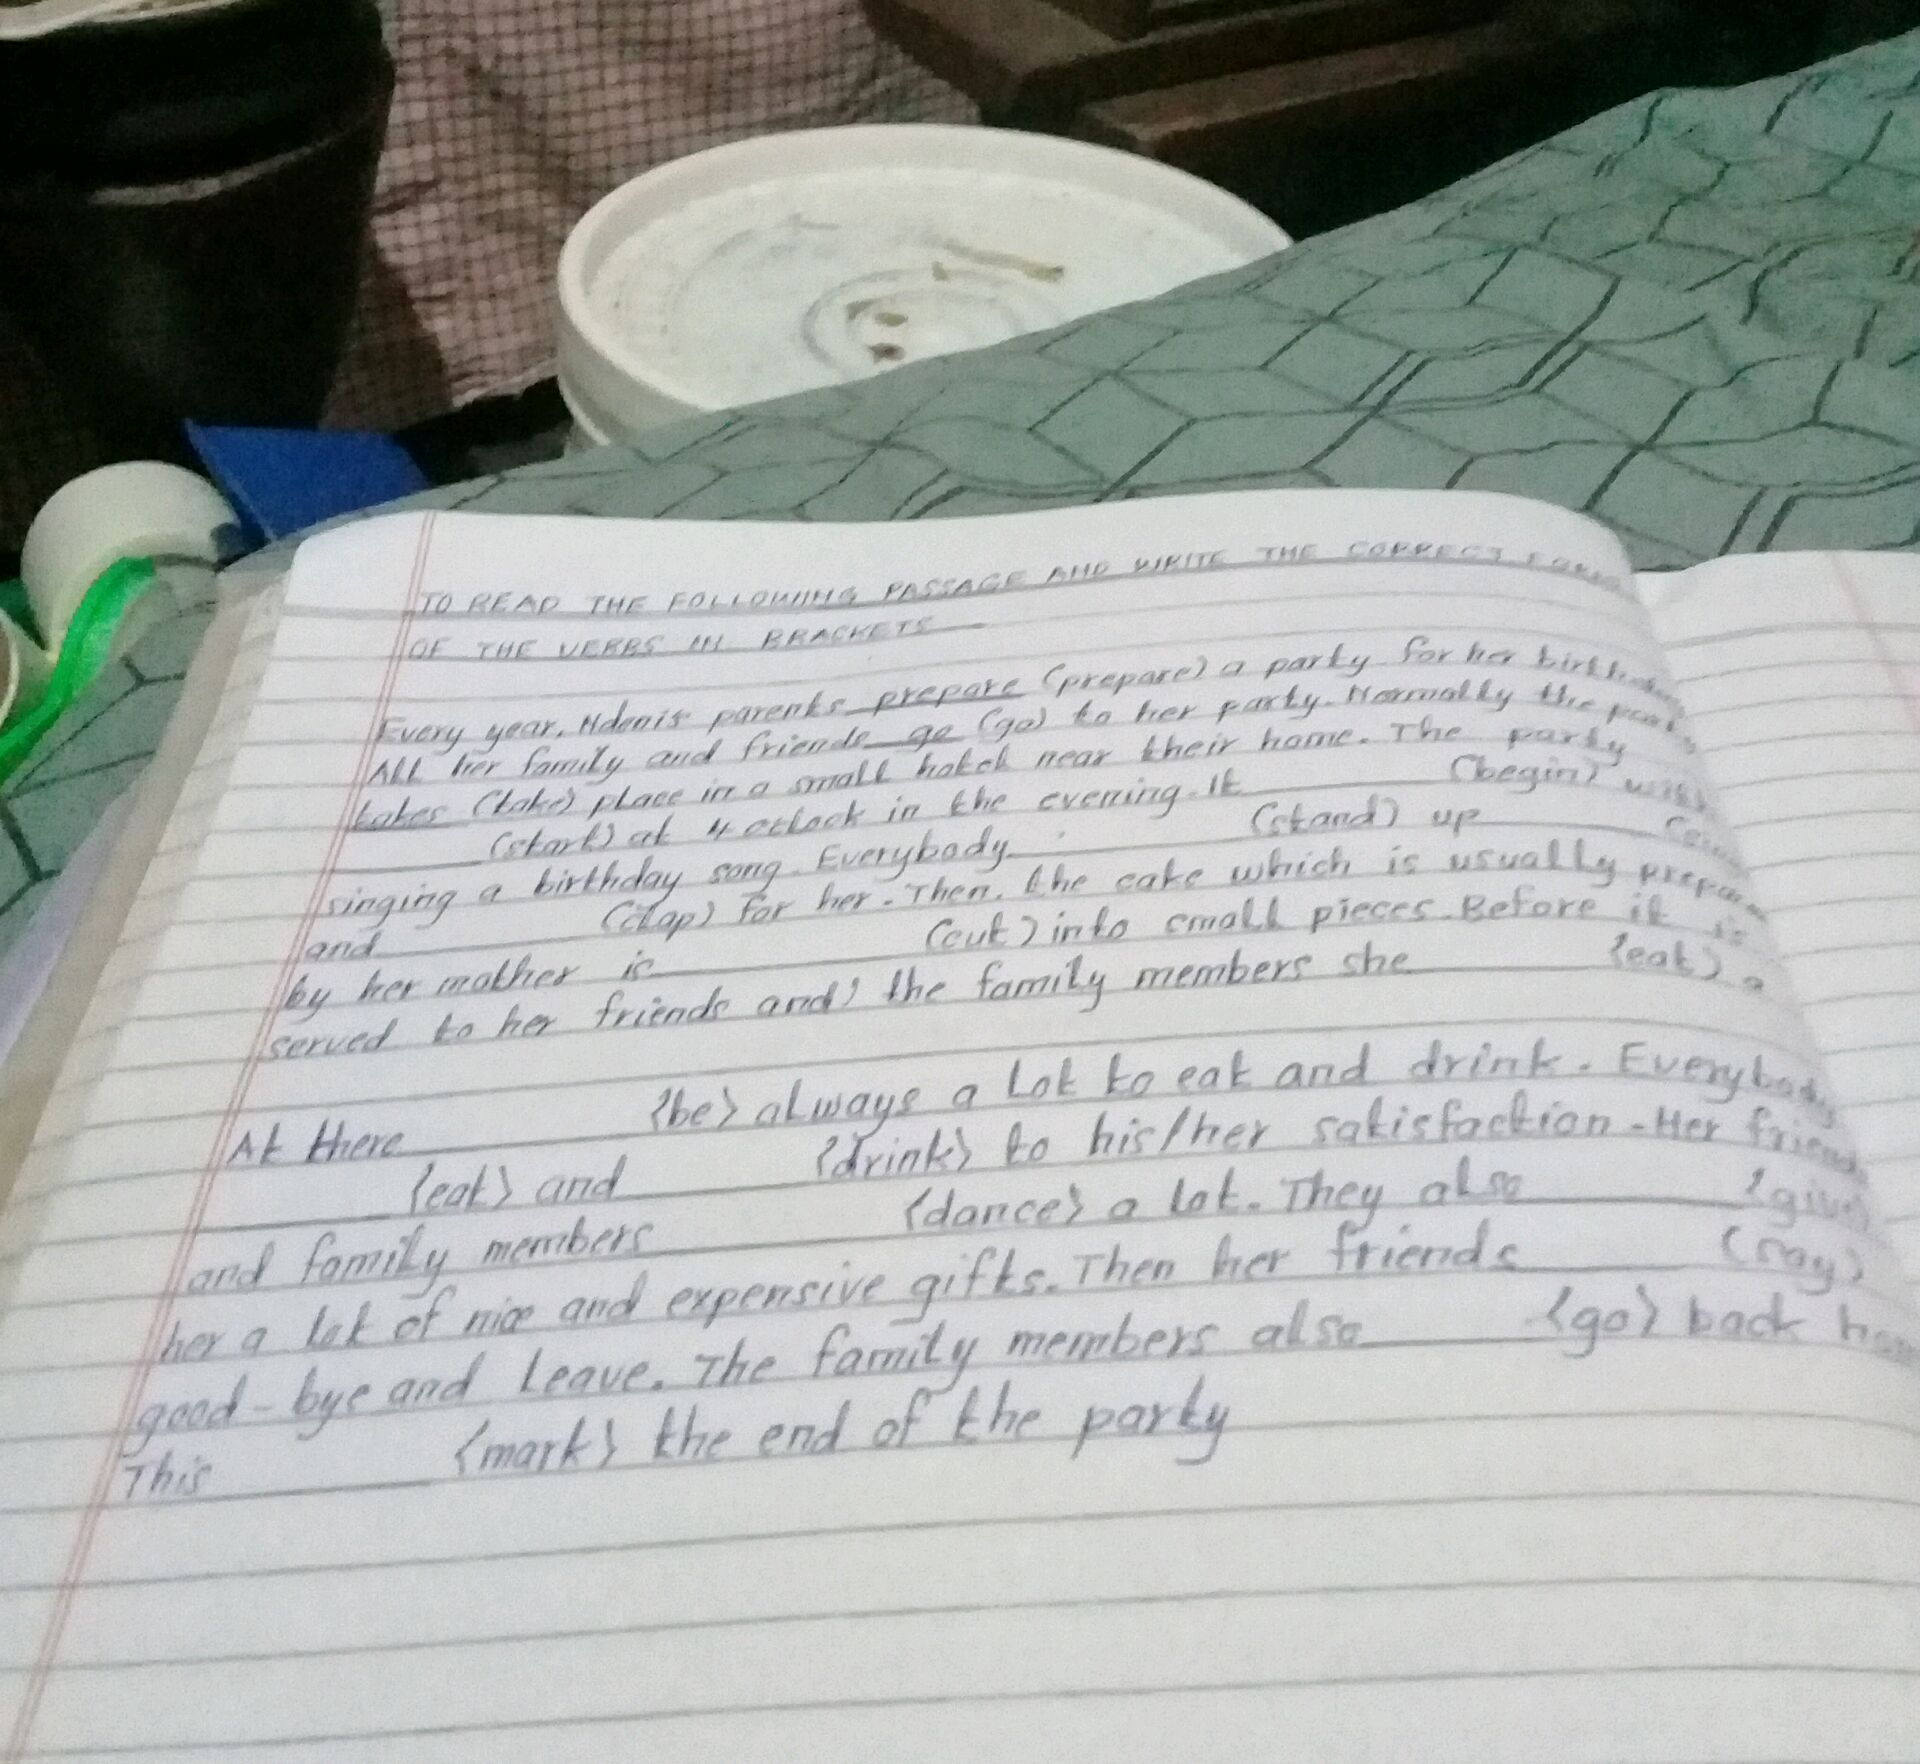 TO READ THE FOLLOWING PASSAGE AND WRITE THE CORRECT FORM
OF THE VERBS IN BRACKETS
Every year, Ndenis parents prepare (prepare) a party for her birthday
All her family and friends go (go) to her party. Normally the party
takes (take) place in a small hotel near their home. The party
_____ (start) at 4 oclock in the evening. It _____ (begin) with
singing a birthday song. Everybody _____ (stand) up _____
and _____ (clap) for her. Then, the cake which is usually
by her mother is _____ (cut) into small pieces. Before it is
served to her friends and, the family members she _____ {eat) a
At there _____ {be} always a lot to eat and drink. Everybody
_____ {eat} and _____ {drink} to his/her satisfaction. Her friends
and family members _____ {dance} a lot. They also _____ {give}
her a lot of nice and expensive gifts. Then her friends _____ (say)
good-bye and leave. The family members also _____ {go} back
This _____ {mark} the end of the party